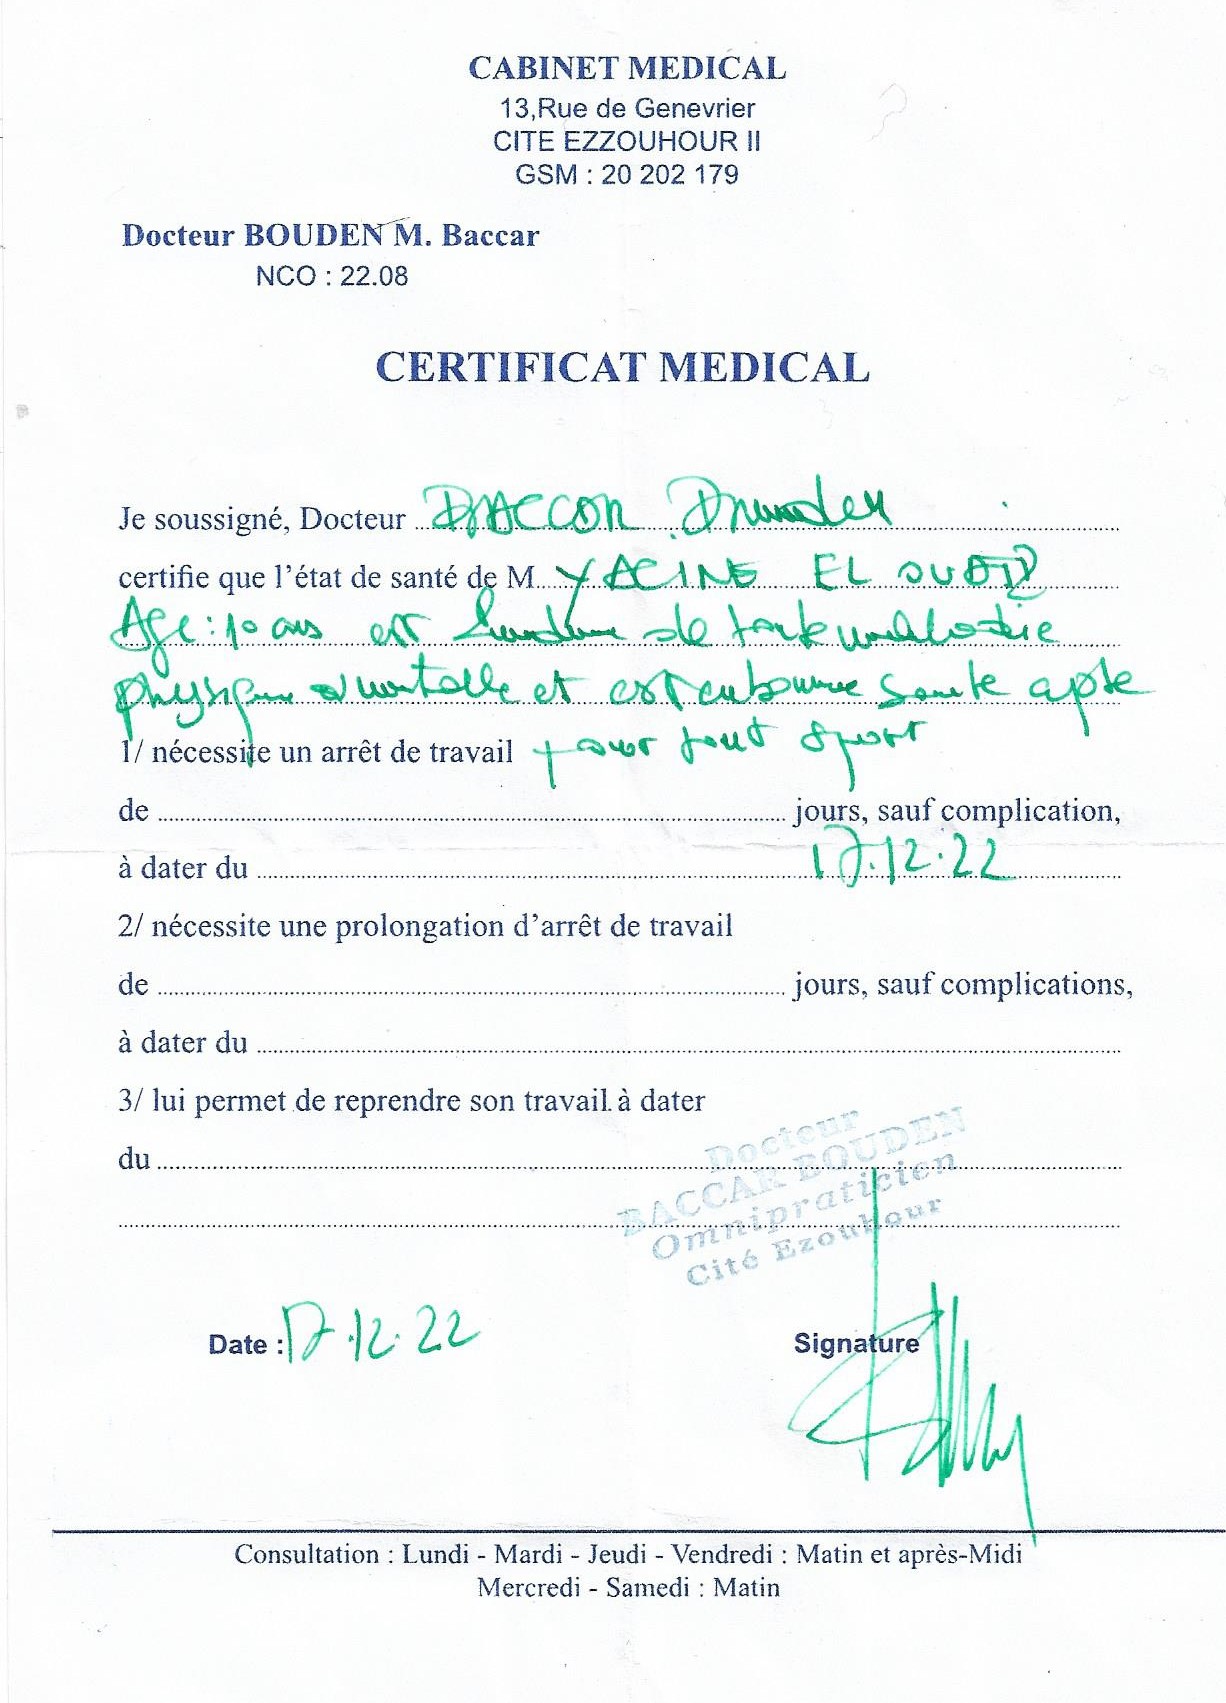 CABINET MEDICAL
13,Rue de Genevrier
CITE EZZOUHOUR II
GSM : 20 202 179
Docteur BOUDEN M. Baccar
NCO : 22.08
CERTIFICAT MEDICAL
Je soussigné, Docteur
certifie que l'état de santé de M YACINE EL
Age : 10 ans est de toute maladie
physique et mentale et est en bonne santé apte
1/ nécessite un arrêt de travail pour tout sport
de jours, sauf complication,
à dater du 17.12.22
2/ nécessite une prolongation d'arrêt de travail
de jours, sauf complications,
à dater du
3/ lui permet de reprendre son travail à dater
du
Docteur
BACCAR BOUDEN
Omnipraticien
Cité Ezouhour
Date : 17.12.22
Signature
Consultation : Lundi - Mardi - Jeudi - Vendredi : Matin et après-Midi
Mercredi - Samedi : Matin